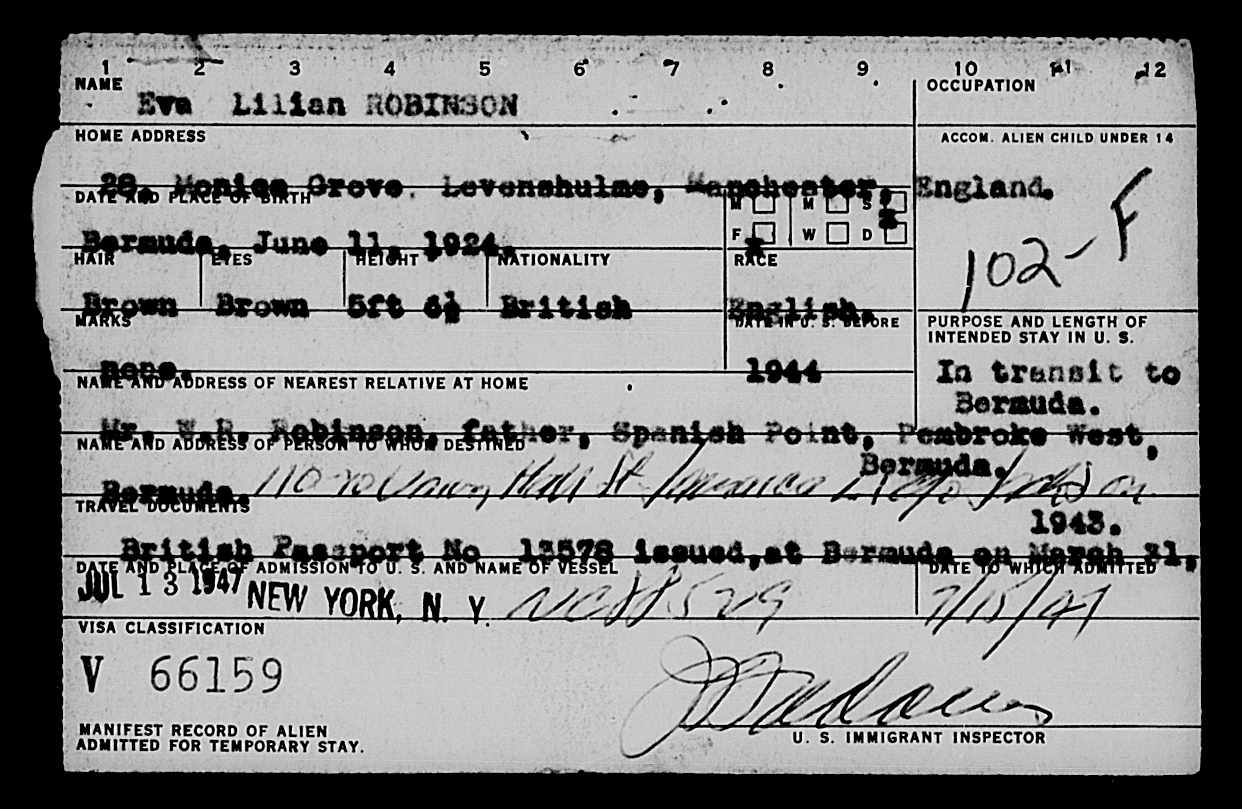 1 2 3 4 5 6 7 8 9 10 11 12
NAME OCCUPATION
Eva Lilian ROBINSON
HOME ADDRESS ACCOM. ALIEN CHILD UNDER 14
28, Monica Grove. Levenshulme, Manchester, England.
DATE AND PLACE OF BIRTH M M S
F x W D x
Bermuda, June 11, 1924.
102-F
HAIR EYES HEIGHT NATIONALITY RACE
Brown Brown 5ft 6½ British English.
MARKS DATE IN U. S. BEFORE PURPOSE AND LENGTH OF
INTENDED STAY IN U. S.
none. 1944 In transit to
Bermuda.
NAME AND ADDRESS OF NEAREST RELATIVE AT HOME
Mr. W.R. Robinson, father, Spanish Point, Pembroke West,
Bermuda.
NAME AND ADDRESS OF PERSON TO WHOM DESTINED
Bermuda. St Jamaica
TRAVEL DOCUMENTS
1943.
British Passport No 13578 issued,at Bermuda on March 31,
DATE AND PLACE OF ADMISSION TO U. S. AND NAME OF VESSEL DATE TO WHICH ADMITTED
JUL 13 1947 NEW YORK, N. Y. 529 7/15/47
VISA CLASSIFICATION
V 66159
MANIFEST RECORD OF ALIEN
ADMITTED FOR TEMPORARY STAY.
U. S. IMMIGRANT INSPECTOR